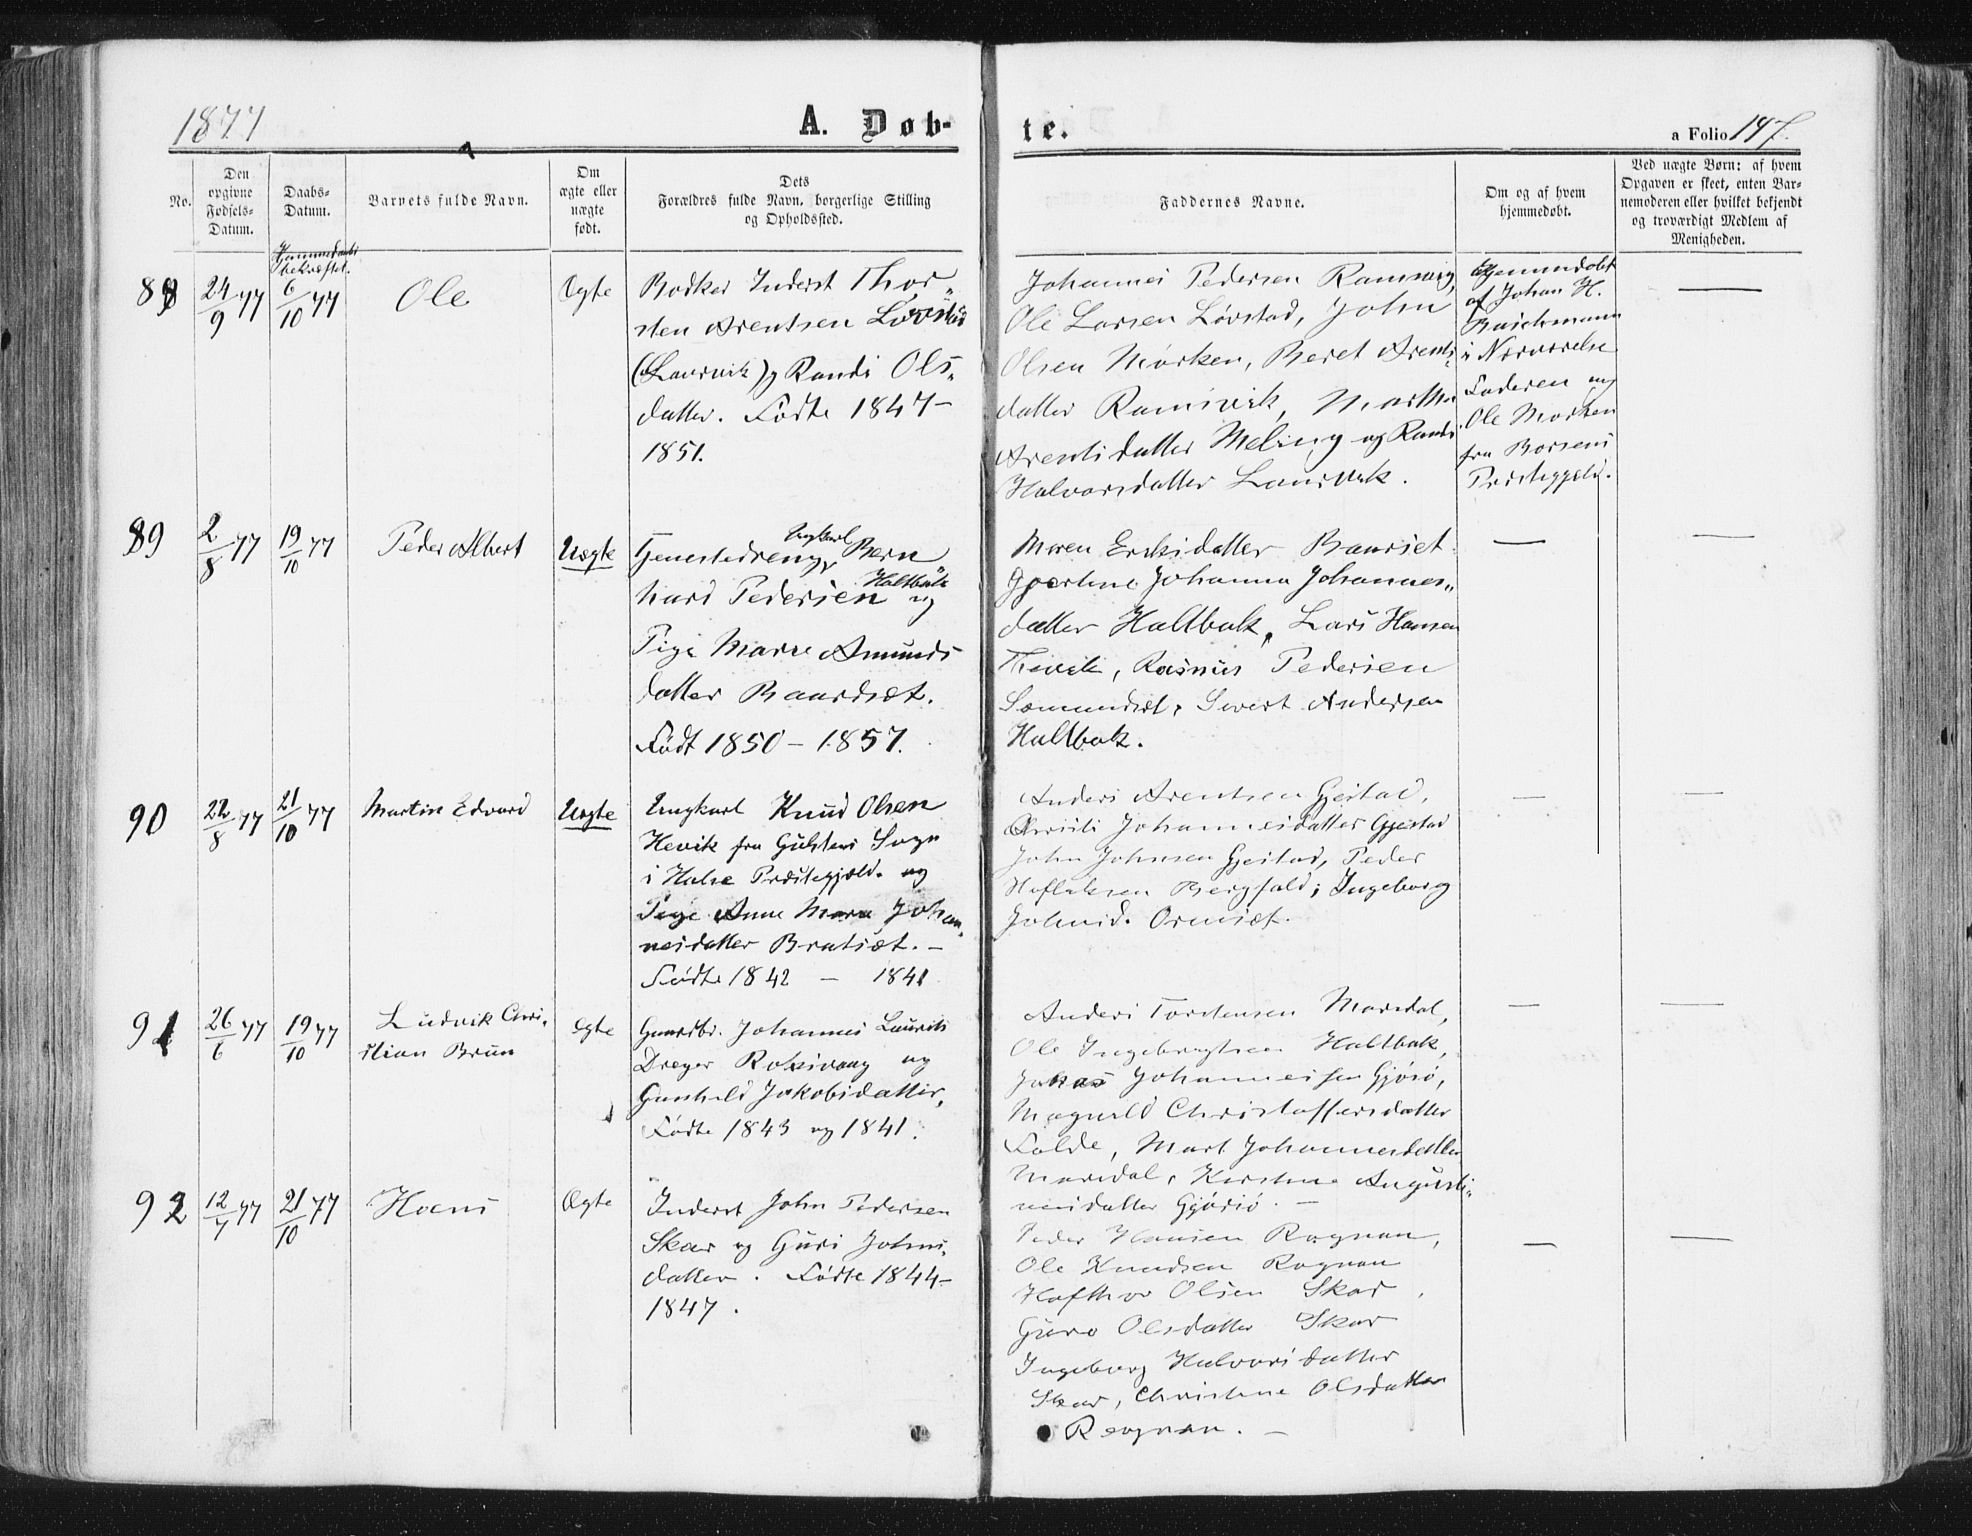 1877
A. Døb-
te.
a Folio 147.
No.
Den opgivne Fødsels-Datum.
Daabs-Datum.
Barnets fulde Navn.
Om ægte eller uægte født.
Dets Forældres fulde Navn, borgerlige Stilling og Opholdssted.
Faddernes Navne.
Om og af hvem hjemmedøbt.
Ved uægte Børn: af hvem Opgaven er skeet, enten Barnemoderen eller hvilket bekjendt og troværdigt Medlem af Menigheden.
88
24/9 77
bekræftet.
6/10 77
Ole
Ægte
Bødker Inderst Thor-
sten Arentsen Løvstad
(Laurvik) og Randi Ols-
datter. Fødte 1847-
1851.
Johannes Pedersen Ramsvig,
Ole Larsen Løvstad, John
Olsen Mørken, Beret Arents-
datter Ramsvik, Marthe
Arentsdatter Meling og Randi
Halvorsdatter Laurvik.
Hjemmdøbt
af Johan H.
Buschmann
i Nærværelse
Faderen og
Ole Morken
fra Borsens
Præstegjeld.
89
2/8 77
19/10 77
Peder Albert
Uægte
Ungkarl
Tjenestedreng Bern
hard Pedersen Haltbak og
Pige Marre Amunds
datter Baardsæt.
Født 1850 - 1857.
Maren Eriksdatter Baarset
Johanna Johannes-
datter Haltbak, Lars Hansen
Thevik, Rasmus Pedersen
Sæmundset, Sivert Andersen
Haltbak.
90
22/8 77
21/10 77
Martin Edvard
Uægte
Ungkarl Knud Olsen
Hevik fra Gulstens Sogn
i Halse Præstegjæld. og
Pige Anne Marie Johan-
nesdatter Bratsæt. -
Fødte 1842 - 1841
Anders Arentsen Gjestad,
Johannesdatter Gjestad
John Johnsen Gjestad, Peder
Bergfald; Ingeborg
Johnsd. Ormset.
91
26/6 77
19/10 77
Ludvik Chri-
stian Brun
Ægte
Gaardbr. Johannes Laurits
Dreyer Roksvaag og
Gunhild Jakobsdatter,
Fødte 1843 og 1841.
Anders Torstensen Morsdal,
Ole Ingebrigtsen Haltbak,
Johannessen Gjøsø,
Magnild Christoffersdatter
Folde, Marit Johannesdatter
Morsdal, Kirstine Augusti-
nusdatter Gjøsiø. -
92
12/7 77
21/10 77
Hans
Ægte
Inderst John Pedersen
Skar og Guri Johns-
datter. Fødte 1844-
1847.
Peder Hansen Rognan,
Ole Knudsen Rognan
Hafthor Olsen Skar,
Guro Olsdatter Skar
Ingeborg Halvorsdatter
Skar, Christine Olsdatter
Rognan. -